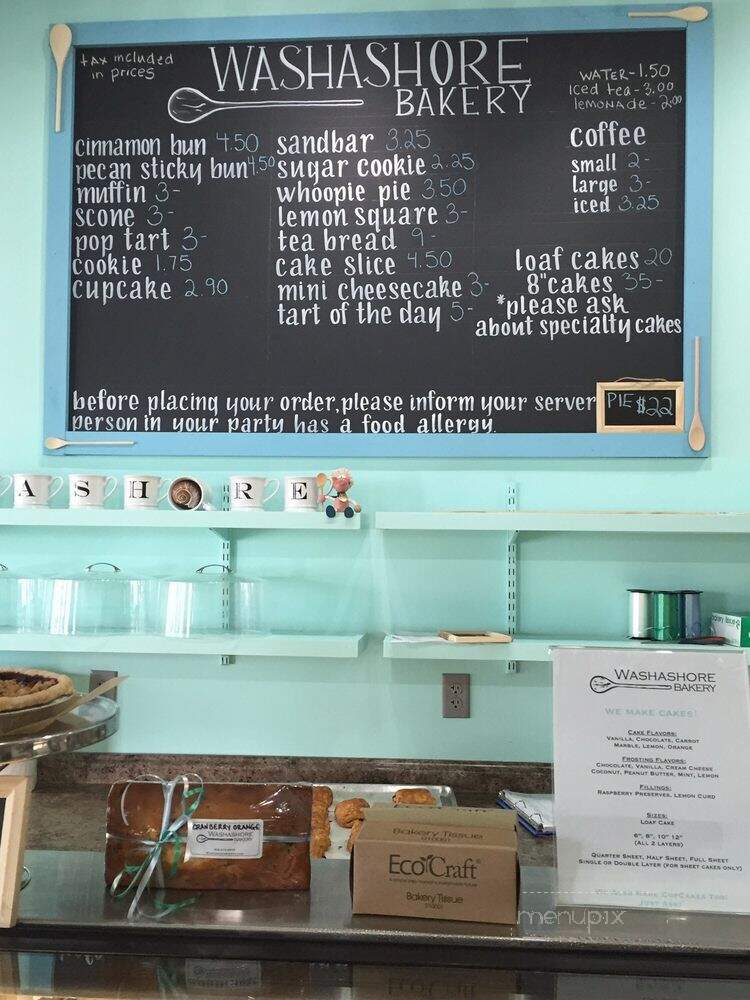 tax included
in prices
WASHASHORE
BAKERY
WATER-1.50
iced tea-3.00
lemonade-2.00
cinnamon bun 4.50
pecan sticky bun 4.50
muffin 3-
scone 3-
pop tart 3-
cookie 1.75
cupcake 2.90
sandbar 3.25
sugar cookie 2.25
whoopie pie 3.50
lemon square 3-
tea bread 9-
cake slice 4.50
mini cheesecake 3-
tart of the day 5-
coffee
small 2-
large 3-
iced 3.25
loaf cakes 20
8"cakes 35-
*please ask
about specialty cakes
before placing your order, please inform your server
person in your party has a food allergy.
PIE $22
A S H R E
WASHASHORE
BAKERY
WE MAKE CAKES!
CAKE FLAVORS:
VANILLA, CHOCOLATE, CARROT
MARBLE, LEMON, ORANGE
FROSTING FLAVORS:
CHOCOLATE, VANILLA, CREAM CHEESE
COCONUT, PEANUT BUTTER, MINT, LEMON
FILLINGS:
RASPBERRY PRESERVES, LEMON CURD
SIZES:
LOAF CAKE
6", 8", 10" 12"
(ALL 2 LAYERS)
QUARTER SHEET, HALF SHEET, FULL SHEET
SINGLE OR DOUBLE LAYER (FOR SHEET CAKES ONLY)
WE ALSO MAKE CUPCAKES TOO!
JUST ASK!
CRANBERRY ORANGE
WASHASHORE
BAKERY
Bakery Tissue
EcoCraft
Bakery Tissue
menupix